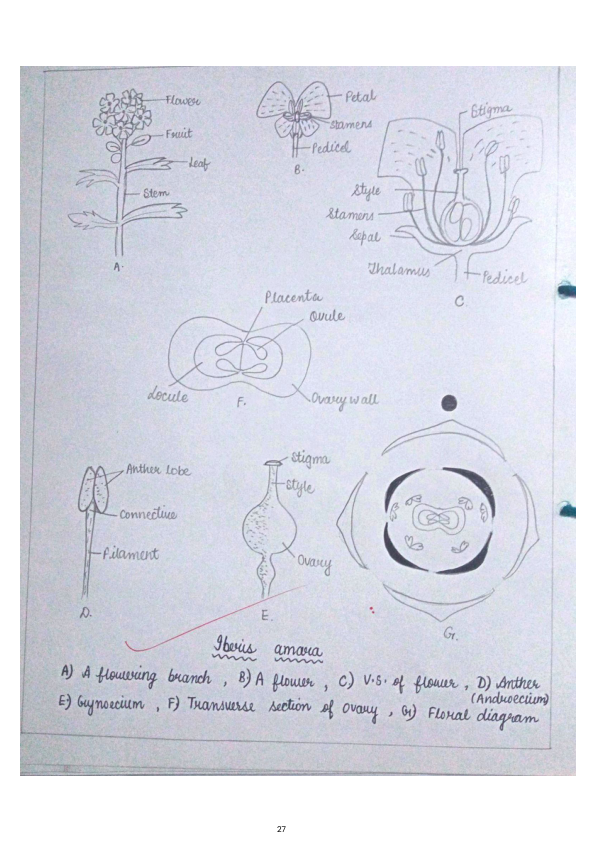 Flower
Fruit
Leaf
Stem
A.
Petal
Stamens
Pedicel
B.
Stigma
Style
Stamens
Sepal
Thalamus
Pedicel
C.
Placenta
Ovule
Locule
Ovary wall
F.
Anther lobe
Connective
Filament
D.
Stigma
Style
Ovary
E.
G.
Iberis amara
A) A flowering branch , B) A flower , C) V.S. of flower , D) Anther
(Androecium)
E) Gynoecium , F) Transverse section of Ovary , G) Floral diagram
27